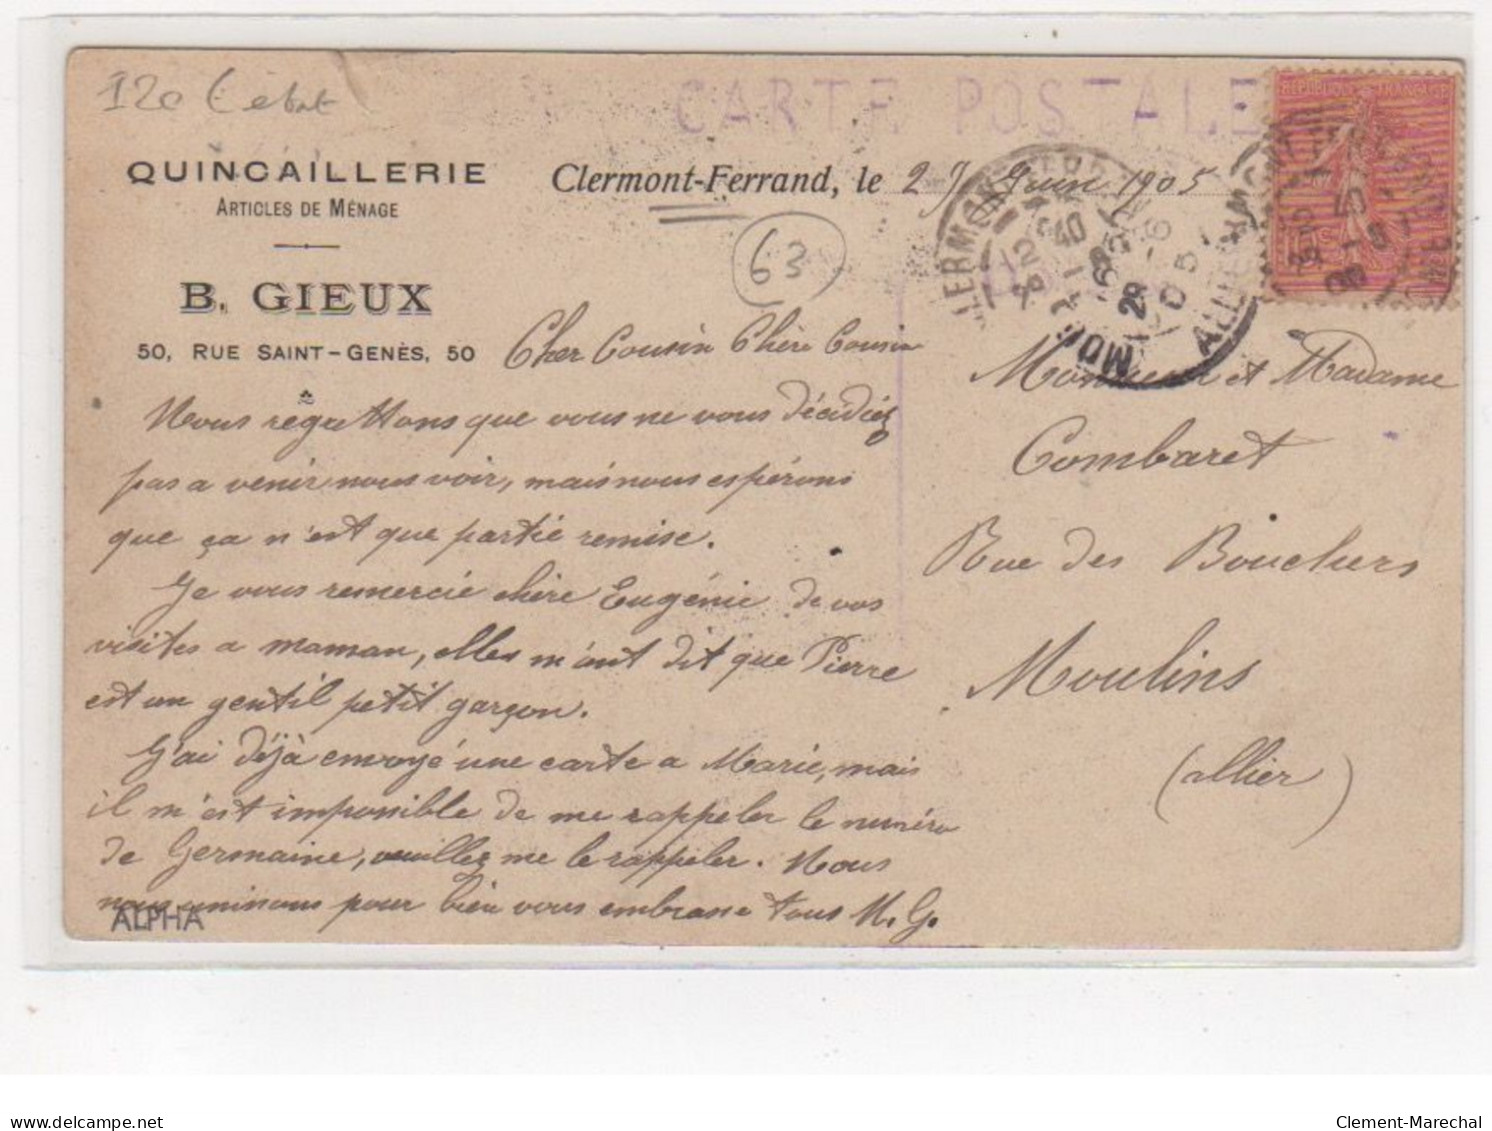 120 Cébat
CARTE POSTALE
QUINCAILLERIE
ARTICLES DE MÉNAGE
B. GIEUX
50, RUE SAINT-GENÈS, 50
Clermont-Ferrand, le 27 Juin 1905
63
Cher Cousin Chère Cousine
Nous regrettons que vous ne vous décidiéz
pas a venir nous voir, mais nous espérons
que ça n'est que partié remise.
Je vous remercie chère Eugénie de vos
visites a maman, elles m'ont dit que Pierre
est un gentil petit garçon.
J'ai déjà envoyé une carte a Marie, mais
il m'est impossible de me rappeler le numéro
de Germaine, veuillez me le rappeler. Nous
nous unissons pour bien vous embrasse tous M. G.
ALPHA
RÉPUBLIQUE FRANÇAISE
Monsieur et Madame
Combaret
Rue des Bouchers
Moulins
(allier)
delcampe.net
Clement-Marechal